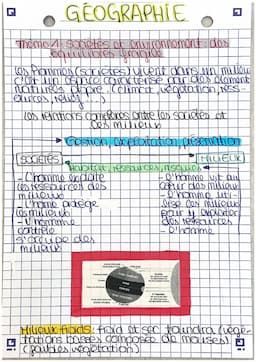 GÉOGRAPHIE
THÈME 1: SOCIÉTÉS ET ENVIRONNEMENT: DES
ÉQUILIBRES FRAGILES
Les hommes (sociétés) vivent dans un milieu
c'est un espace caractérisé par des élément
naturels propre. (climat, végétation, ress-
ources, relief...)
Les relations complexes entre les sociétés et
des milieux
Gestion, exploitation, préservation
SOCIÉTÉS
MILIEUX
Habitat, ressources, risques
- L'homme exploite
les ressources des
milieux
- L'homme protège
les milieux
- L'homme
contrôle
s'occupe des
milieux
- L'homme vit au
cœur des milieux
- L'homme uti-
lise les milieux
pour y exploiter
des ressources
- L'homme
Milieux froids: froid et sec toundra (végé-
tations basses composée de mousses)
(faible végétation)